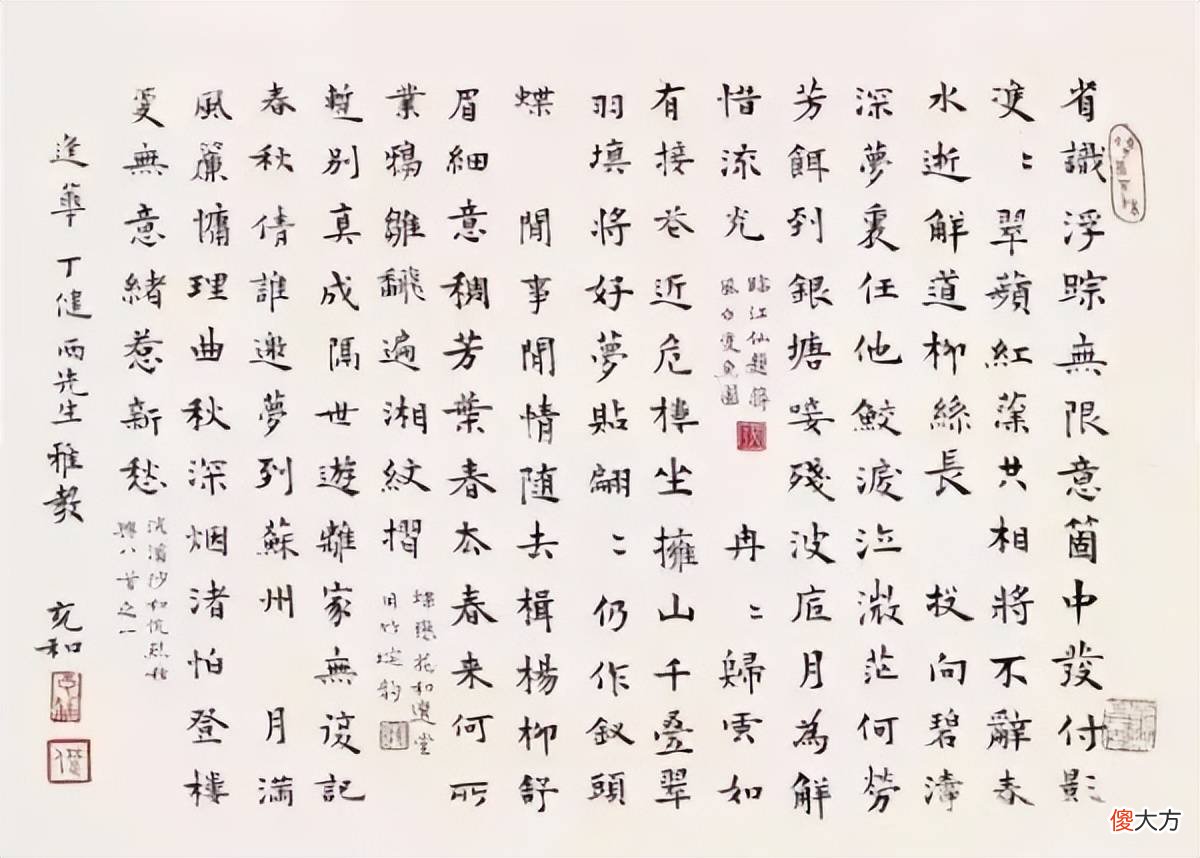 省識浮踪無限意箇中發付影
雙〻翠蘋紅藻共相將不辭春
水逝解道柳絲長 投向碧濤
深夢裏任他鮫淚泣微茫何勞
芳餌到銀塘唼殘波底月為解
惜流光
臨江仙題蔣
風白雙魚圖
冉〻歸雲如
有接卷近危樓坐擁山千疊翠
羽填將好夢貼翩〻仍作釵頭
蝶 閒事閒情随去楫楊柳舒
眉細意稠芳葉春去春来何所
業鴉雛翻遍湘紋摺
蝶戀花和邊堂
用竹垞韵
暫別真成隔世遊離家無復記
春秋倩誰邀夢到蘇州 月滿
風簾慵理曲秋深烟渚怕登樓
更無意緒惹新愁
浣溪沙和伉烈
韻八首之一
進華丁健両先生雅教 充和
傻大方